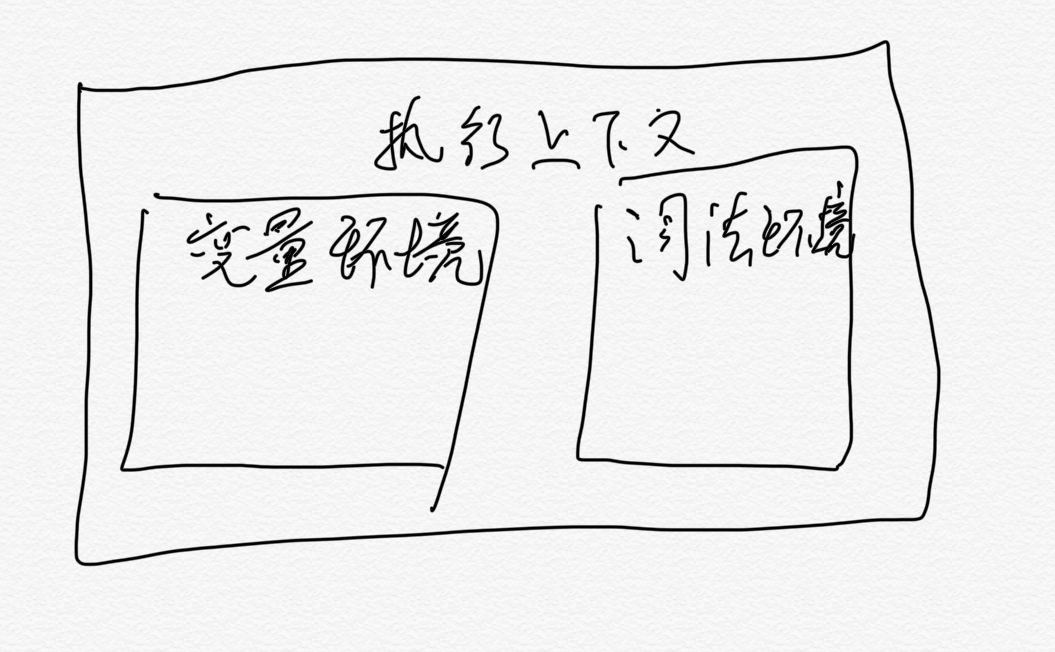 执行上下文
变量环境
词法环境